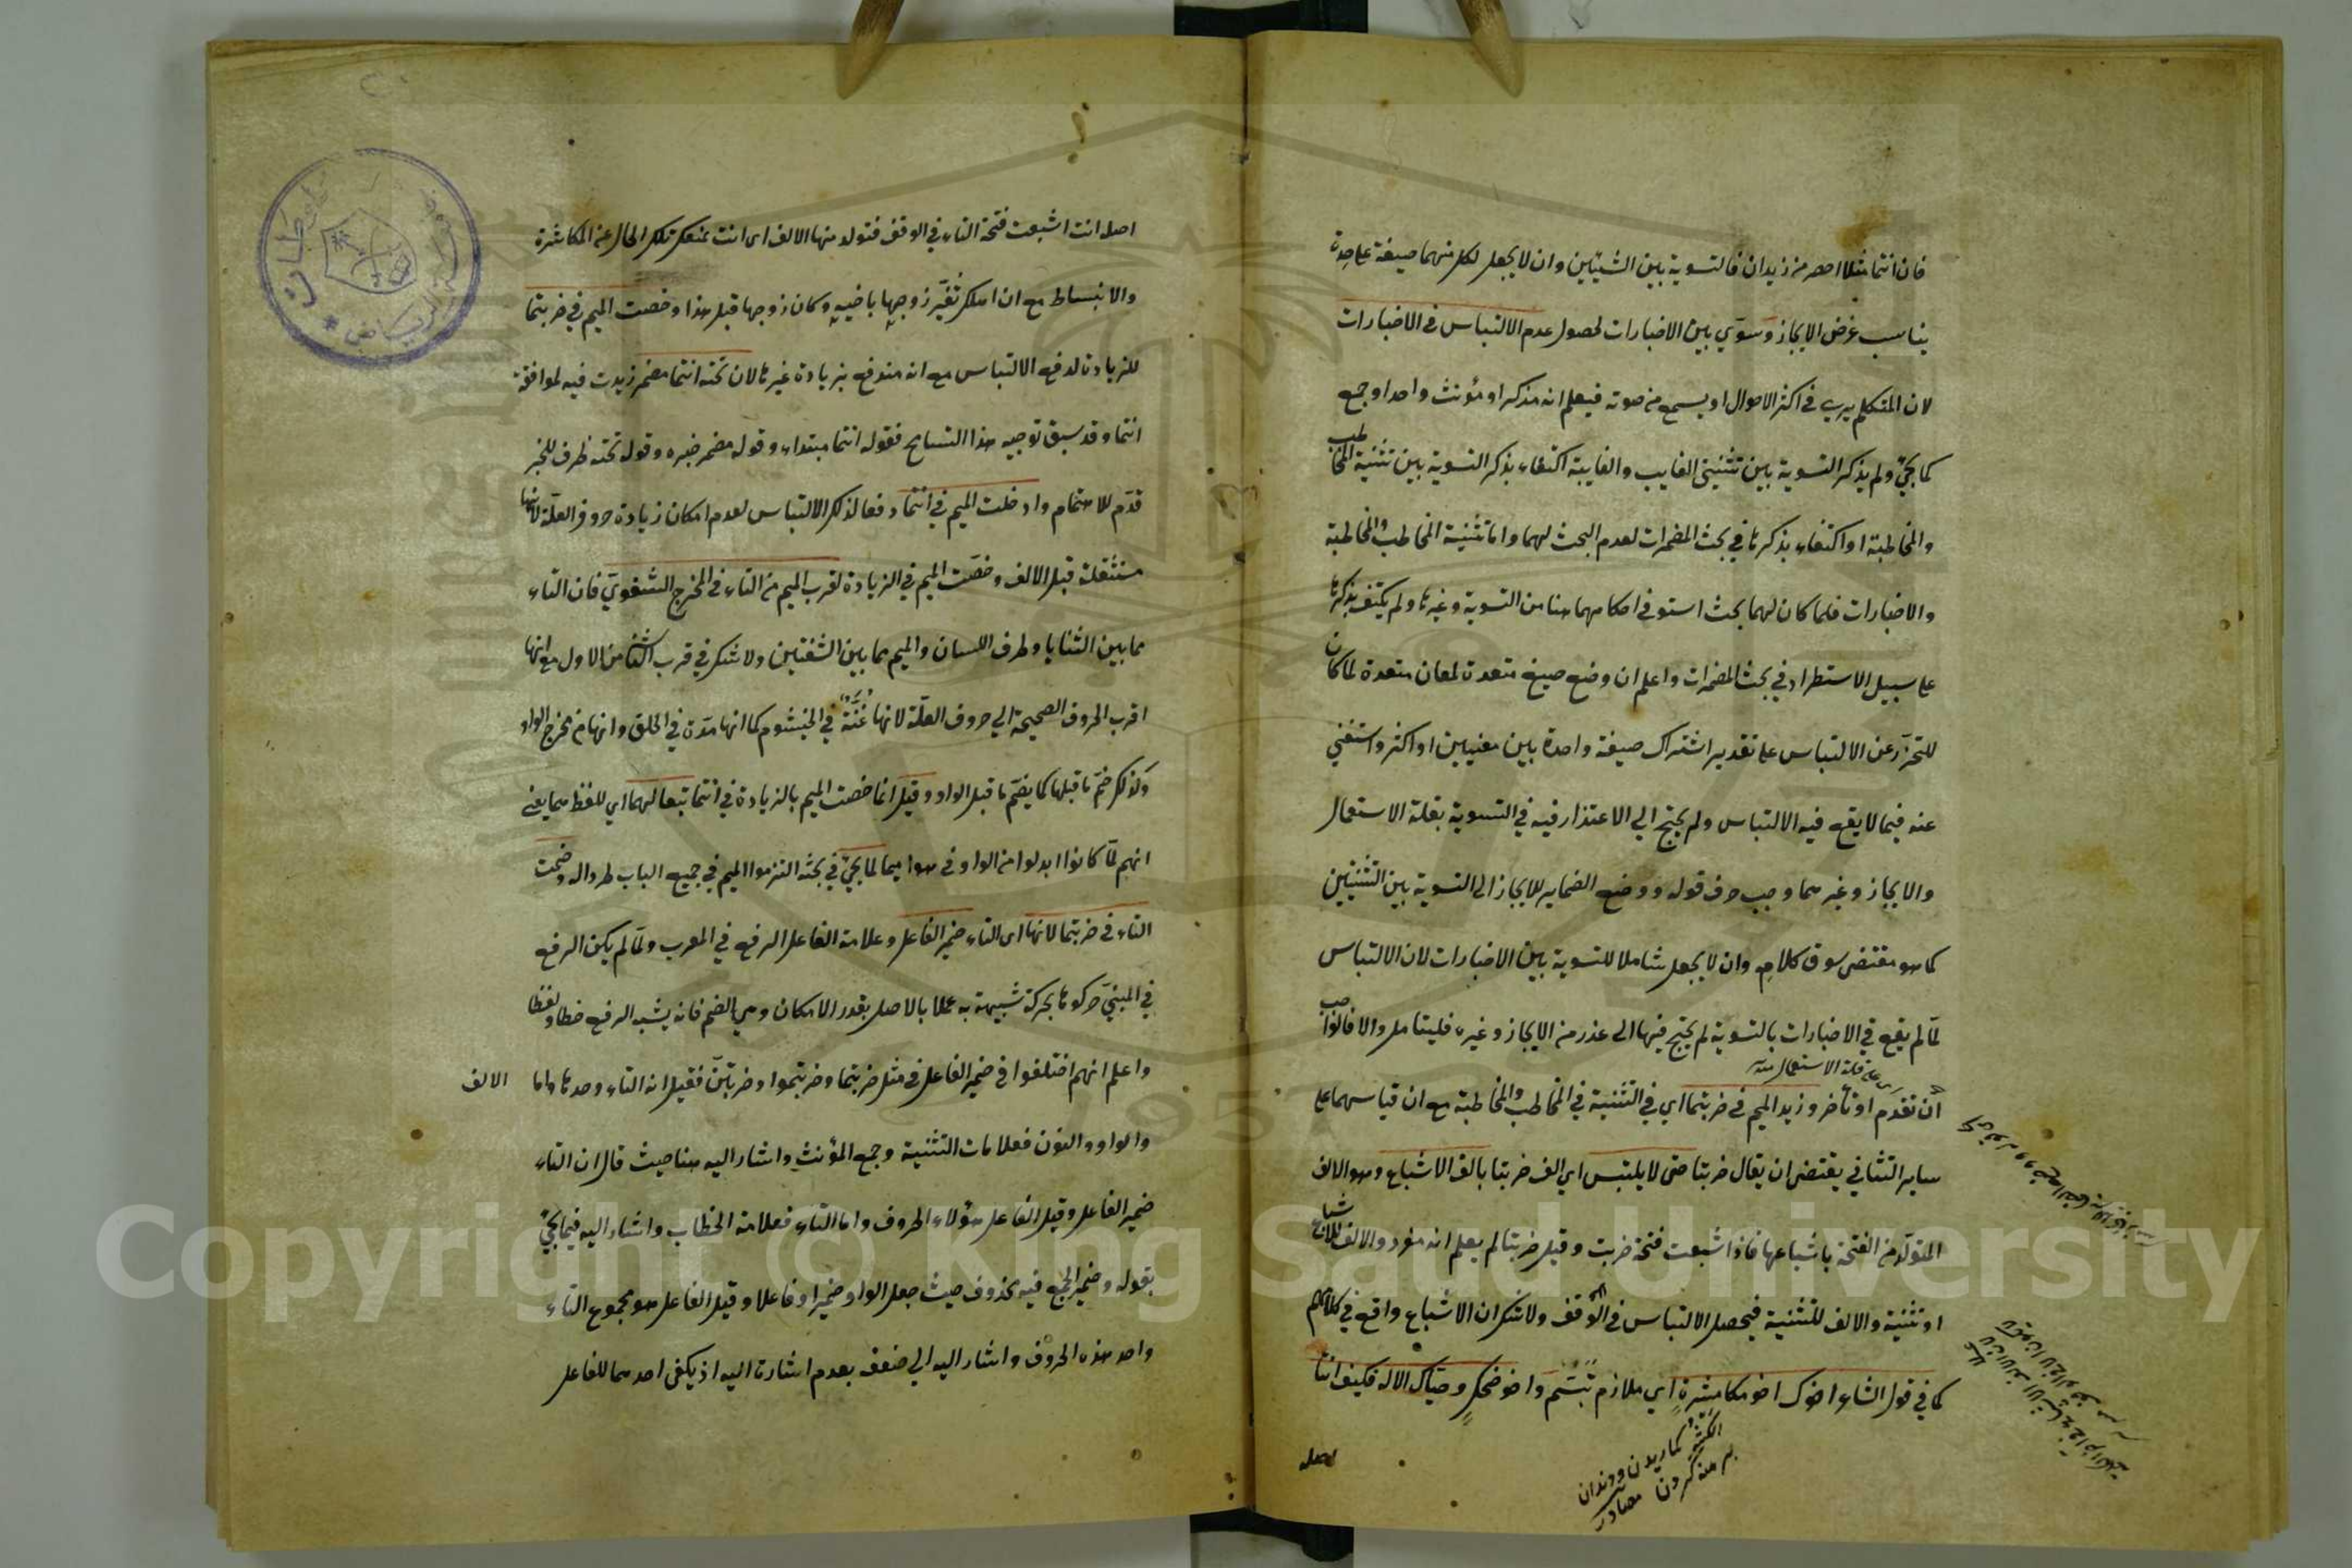 فان انتما مثلا اخصر من زيدان فالتسوية بين الشيئين وان لا يجعل لكل منهما صيغة علىحدة
يناسب غرض الايجاز وسوّي بين الاخبارات لحصول عدم الالتباس فى الاخبارات
لان المتكلم يرى في اكثر الاحوال او يسمع من صوته فيعلم انه مذكر او مؤنث واحد او جمع
كما يجئ ولم يذكر التسوية بين تثنيتى الغايب والغايبة اكتفاء بذكر التسوية بين تثنية المخاطب
والمخاطبة او اكتفاء بذكرها في بحث المضمرات لعدم البحث لهما واما تثنية المخاطب والمخاطبة
والاخبارات فلما كان لهما بحث استوفى احكامهما هنا من التسوية وغيرها ولم يكتف بذكرها
على سبيل الاستطراد في بحث المضمرات واعلم ان وضع صيغ متعددة لمعان متعددة لما كان
للتحرّز عن الالتباس على تقدير اشتراك صيغة واحدة بين معنيين او اكثر واستغنى
عنه فيما لا يقع فيه الالتباس ولم يحتج الي الاعتذار فيه في التسوية بقلة الاستعمال
والايجاز وغيرهما وجب صرف قوله ووضع الضماير للايجاز الى التسوية بين التثنيتين
كما هو مقتضى سوق كلامه وان لا يجعل شاملا للتسوية بين الاخبارات لان الالتباس
لمّا لم يقع في الاخبارات بالتسوية لم يحتج فيها الى عذر من الايجاز وغيره فليتامل والا فالواجب
اى على قلة الاستعمال
أن تقدم او تأخر وزيد الميم في ضربتما اي في التثنية في المخاطب والمخاطبة مع ان قياسهما على
ساير التثاني يقتضى ان يقال ضربتا حتى لا يلتبس اي الف ضربتا بالف الاشباع وهو الالف
المتولّد من الفتحة باشباعها فاذا اشبعت فتحة ضربت وقيل ضربتا لم يعلم انه مفرد والالف للاشباع
او تثنية والالف للتثنية فيحصل الالتباس فى الوقف ولا شك ان الاشباع واقع في كلامهم
كما في قول الشاعر اخوك اخو مكاشرة اي ملازم تبسّم واخو ضحك وحياك الاله فكيف انتا
دندان
برهنه كردن مصادر
اصله
اصله انت اشبعت فتحة التاء في الوقف فتولد منها الالف اى انت بمنعك تلك الحال عن المكاشرة
والانبساط مع ان املك تغيّر زوجها باخيه وكان زوجها قبل هذا وخصت الميم في ضربتما
للزيادة لدفع الالتباس مع انه مندفع بزيادة غيرها لان تحته انتما مضمر زيدت فيه لموافقة
انتما وقد سبق توجيه هذا التسامح فقوله انتما مبتداء وقوله مضمر خبره وقوله تحته ظرف للخبر
قدّم للاهتمام وادخلت الميم في انتما دفعا لذلك الالتباس لعدم امكان زيادة حروف العلّة لانها
مستثقلة قبل الالف وخصّت الميم في الزيادة لقرب الميم من التاء فى المخرج الشفويّ فان التاء
مما بين الثنايا وطرف اللسان والميم مما بين الشفتين ولا شك في قرب الثانى من الاول مع انها
اقرب الحروف الصحيحة الي حروف العلّة لانها غنّة في الخيشوم كما انها مدّة في الحلق وانها من مخرج الواو
وكذلك ضمّ ما قبلها كما يضمّ ما قبل الواو وقيل انما خصت الميم بالزيادة في انتما تبعا لهما اي للفظ هما يعني
انهم لمّا كانوا ابدلوا من الواو فى هوا ميما لما يجئ في بحثه التزموا الميم في جميع الباب طردا له وضمت
التاء فى ضربتما لانها اى التاء ضمير الفاعل وعلامة الفاعل الرفع في المعرب ولمّا لم يكن الرفع
في المبنيّ حركوها بحركة شبيهة به عملا بالاصل بقدر الامكان وهي الضم فانه يشبه الرفع خطا ولفظا
واعلم انهم اختلفوا فى ضمير الفاعل فى مثل ضربتما وضربتموا وضربتنّ فقيل انه التاء وحدها واما الالف
والواو والنون فعلامات التثنية وجمع المؤنث واشار اليه هنا حيث قال ان التاء
ضمير الفاعل وقيل الفاعل هؤلاء الحروف واما التاء فعلامة الخطاب واشار اليه فيما يجئ
بقوله وضمير الجمع فيه محذوف حيث جعل الواو ضميرا وفاعلا وقيل الفاعل هو مجموع التاء
واحد هذه الحروف واشار اليه الي ضعف بعدم اشارته اليه اذ يكفى احدهما للفاعل
Copyright © King Saud University
1957